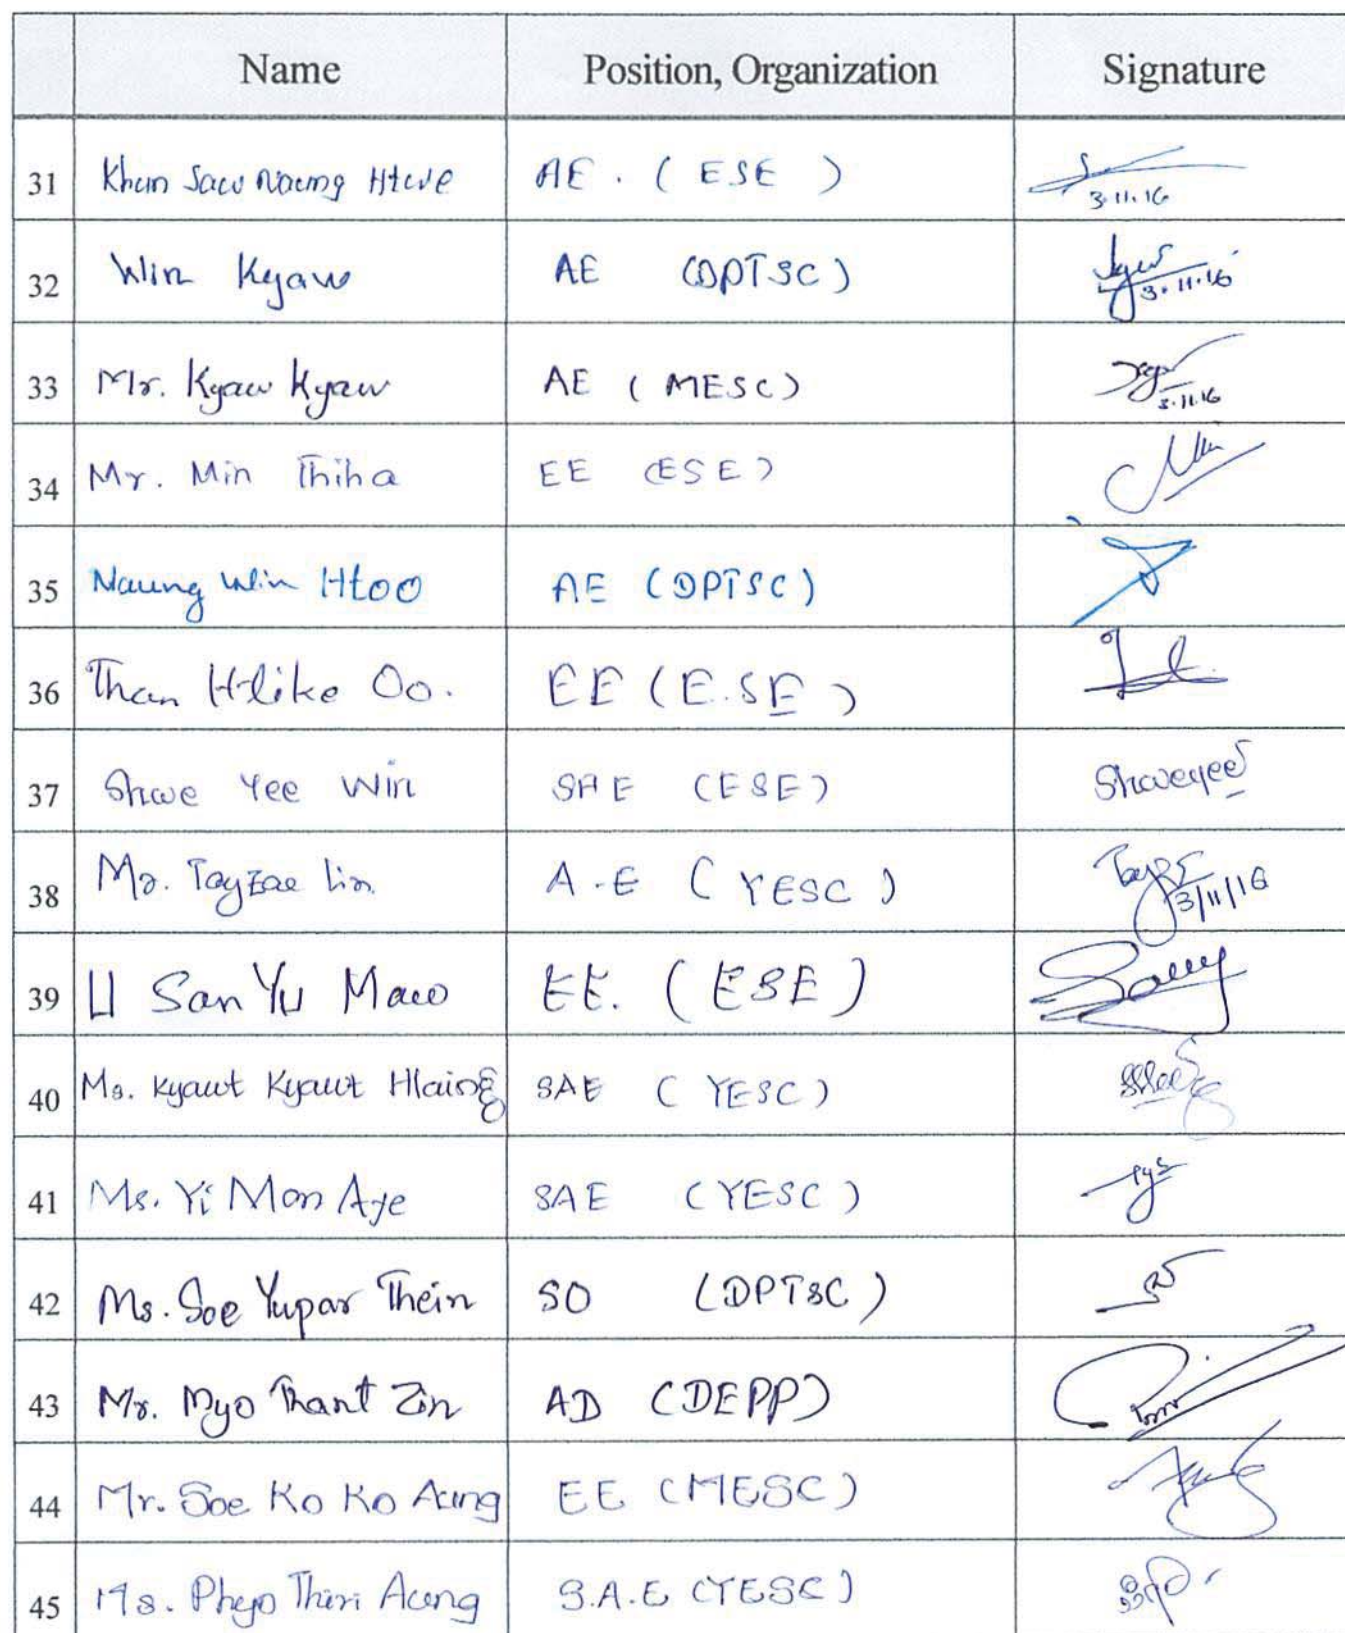 Name Position, Organization Signature
31 Khun Saw Naung Htwe AE. (ESE) 3.11.16
32 Win Kyaw AE (DPTSC) 3.11.16
33 Mr. Kyaw Kyaw AE (MESC) 3.11.16
34 Mr. Min Thiha EE (ESE)
35 Naung Win Htoo AE (DPTSC)
36 Than Htike Oo. EE (E.SE)
37 Shwe Yee Win SAE (ESE) Shweyee
38 Mr. Tayzae Lin A.E (YESC) 3/11/16
39 U San Yu Maw EE. (ESE)
40 Ms. Kyawt Kyawt Hlaing SAE (YESC)
41 Ms. Yi Mon Aye SAE (YESC)
42 Ms. Soe Yupar Thein SO (DPTSC)
43 Mr. Myo Thant Zin AD (DEPP)
44 Mr. Soe Ko Ko Aung EE (MESC)
45 Ms. Phyo Thiri Aung S.A.E (YESC)